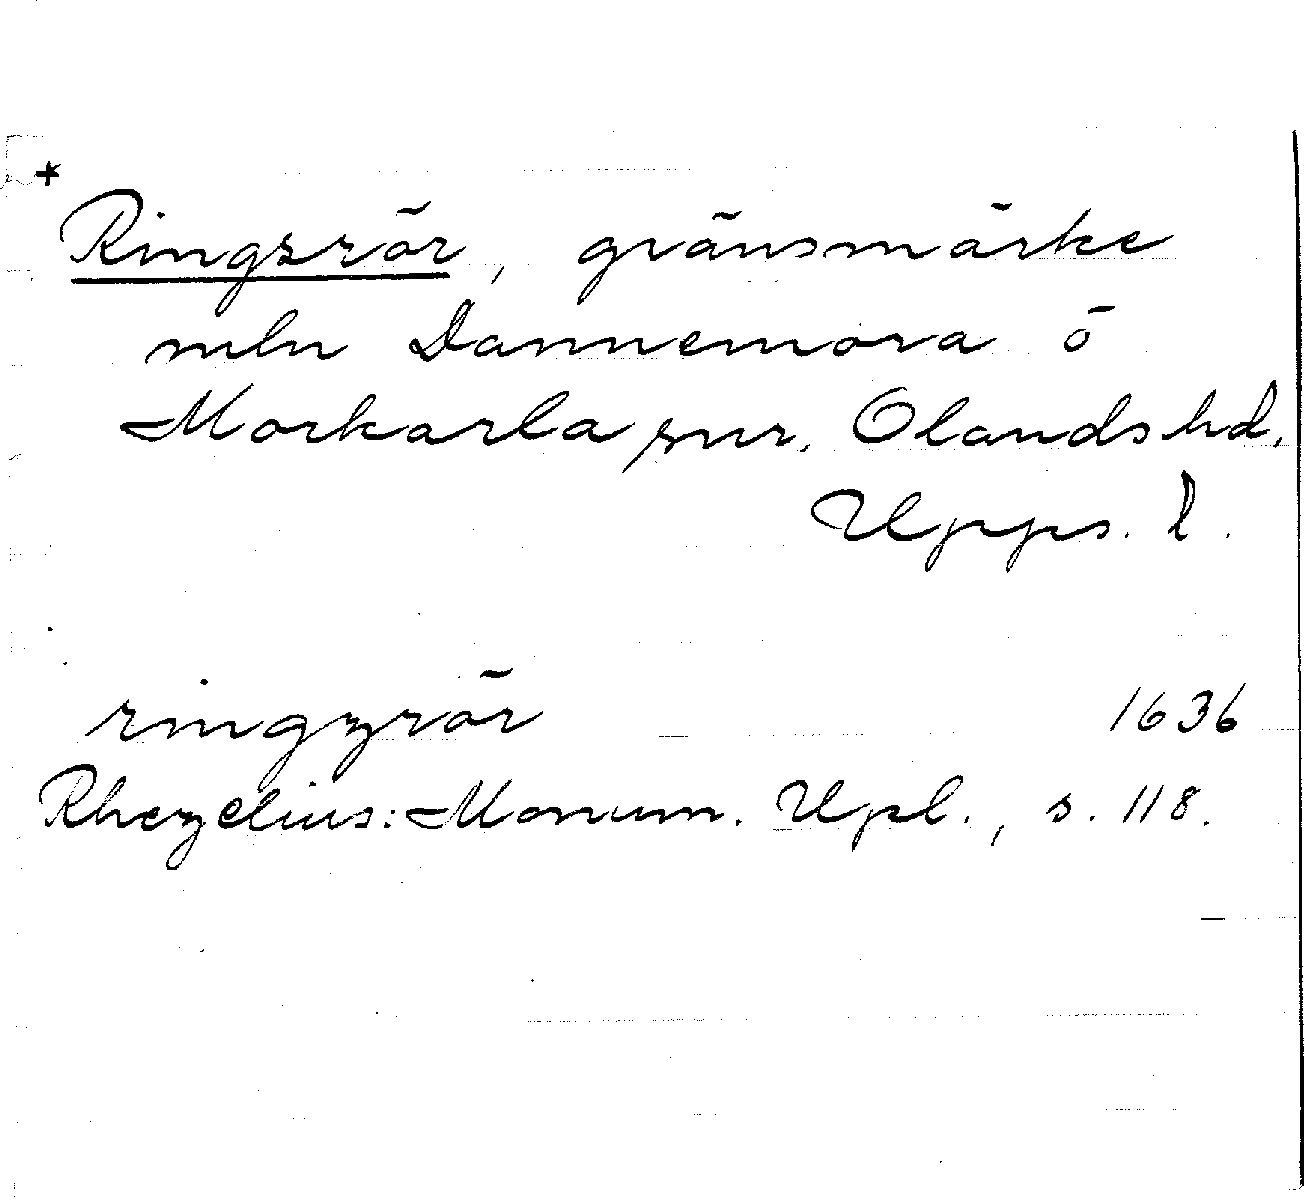 *
Ringsrör, gränsmärke
mln Dannemora o
Morkarla snr. Olandshd,
Upps. l.
ringzrör 1636
Rhezelius: Monum. Upl., s. 118.